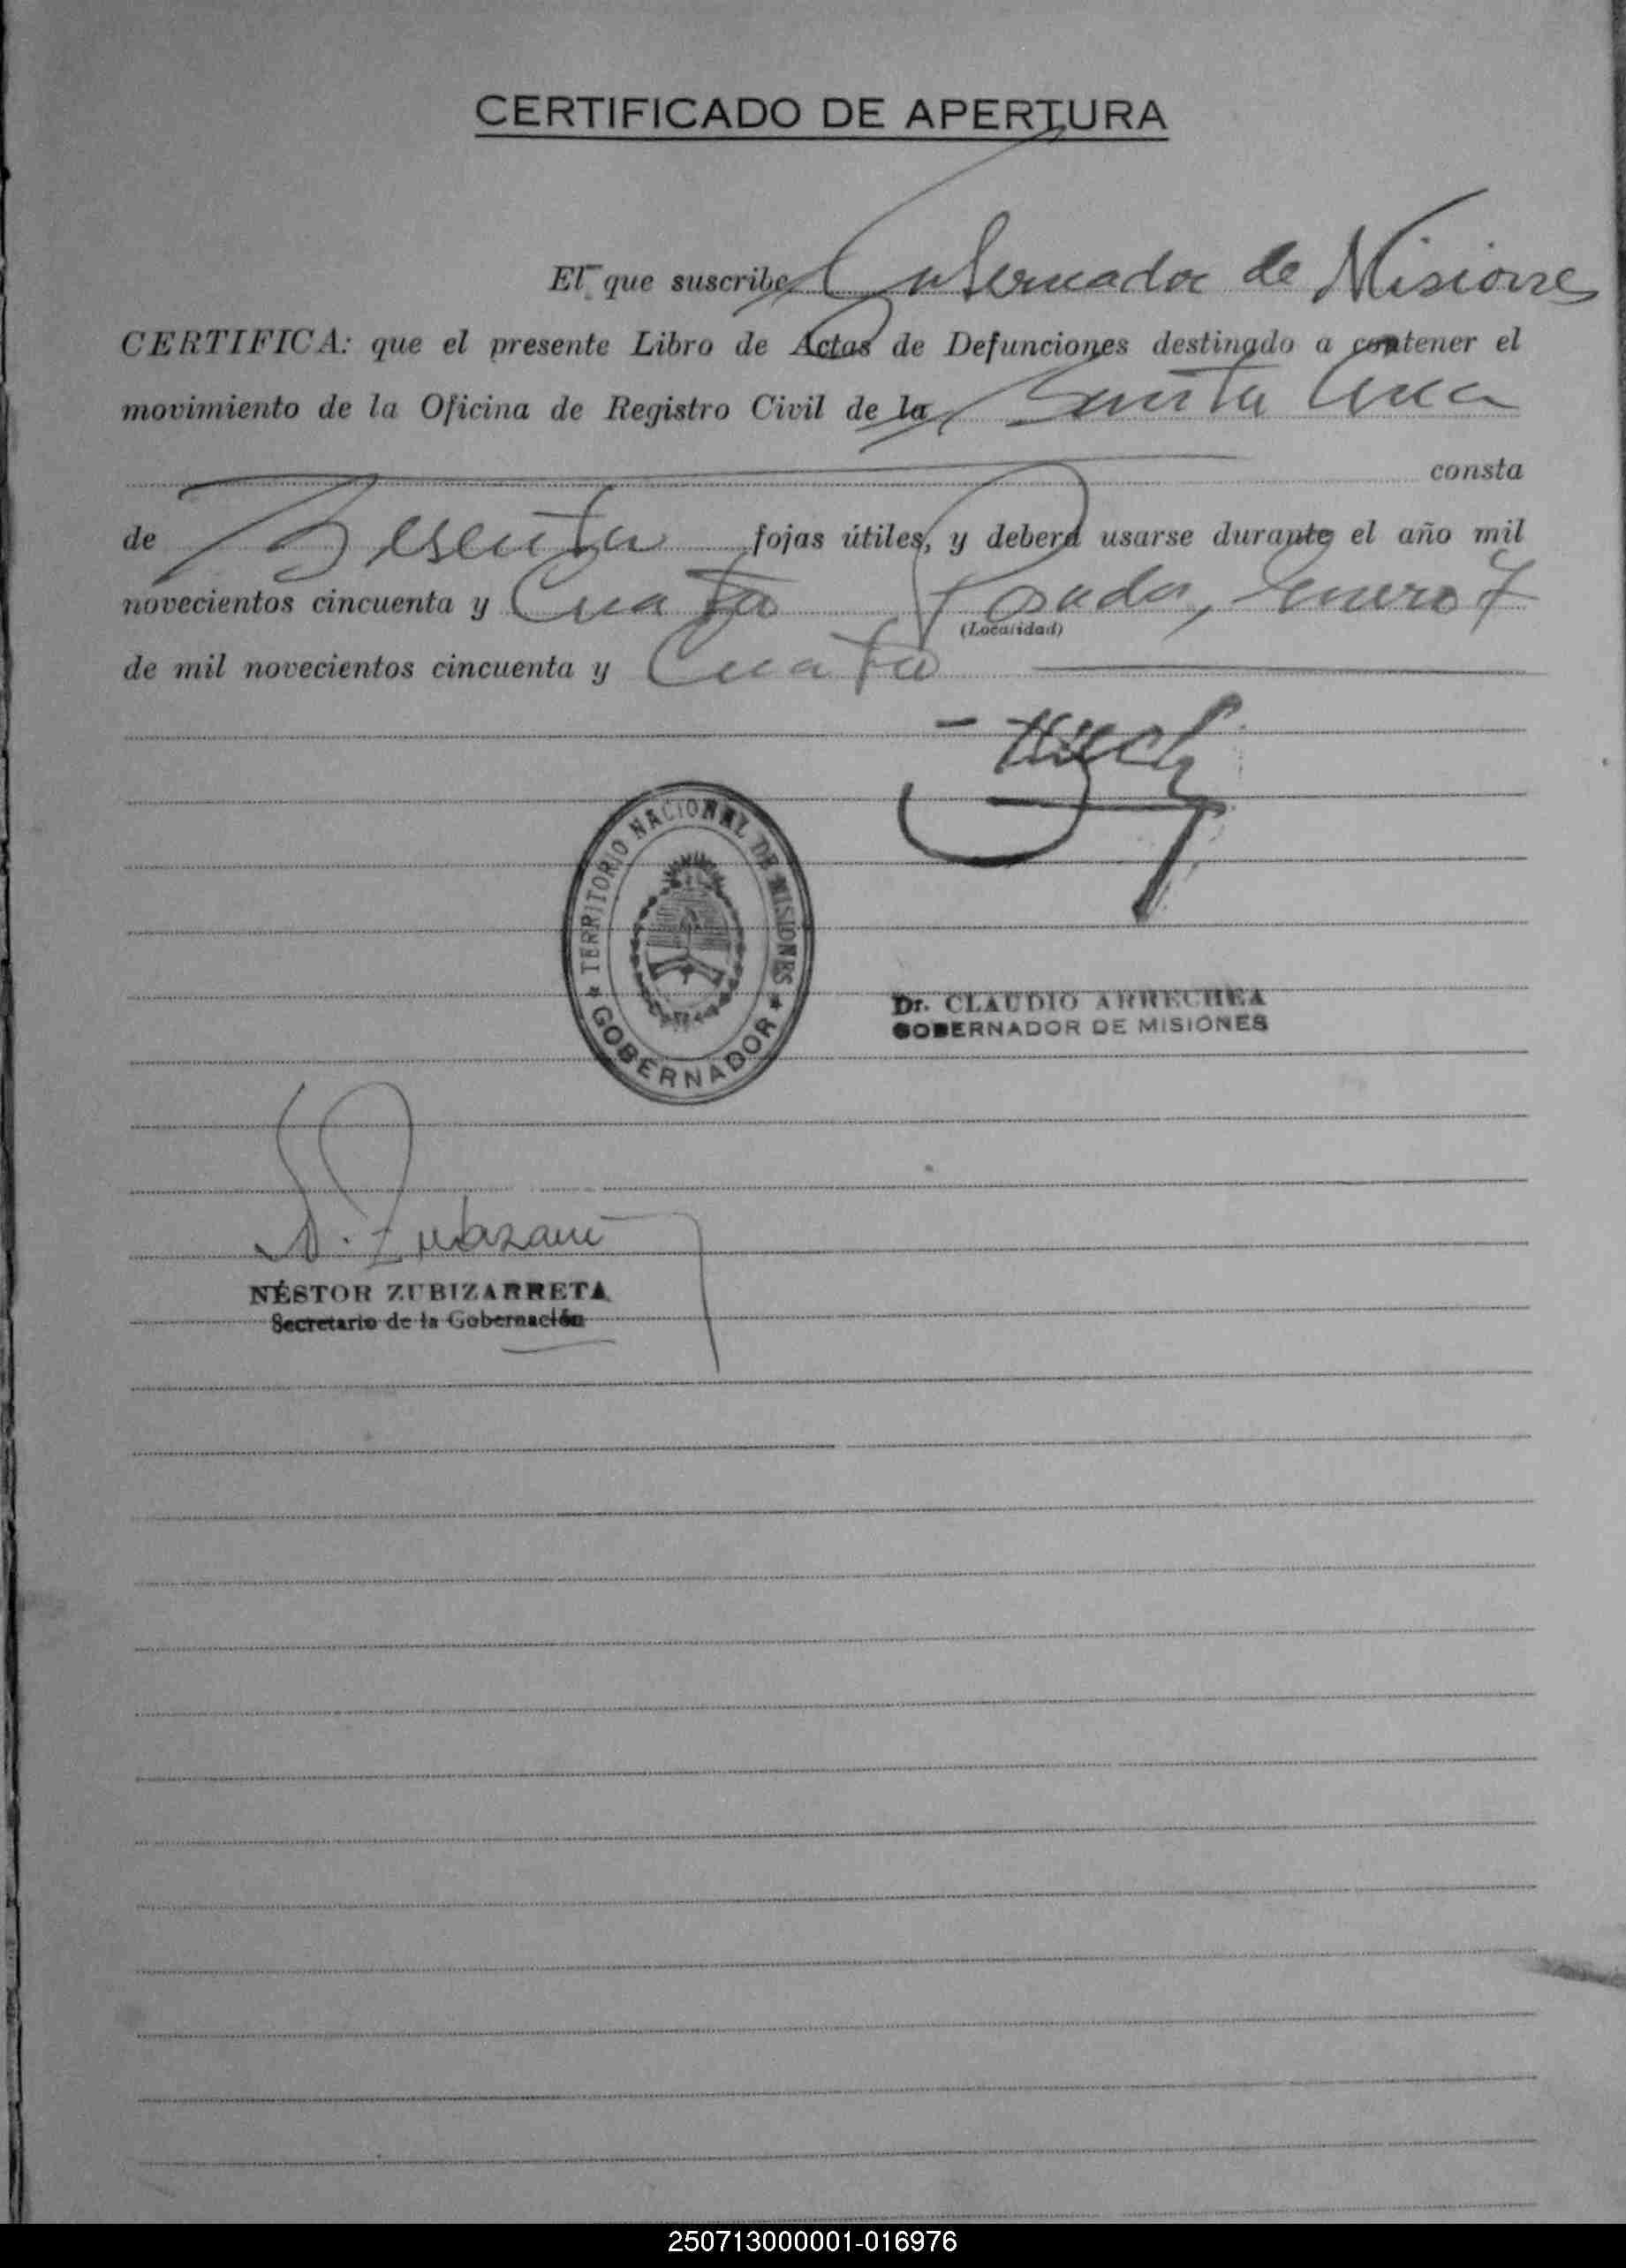 CERTIFICADO DE APERTURA
El que suscribe Gobernador de Misiones
CERTIFICA: que el presente Libro de Actas de Defunciones destinado a contener el
movimiento de la Oficina de Registro Civil de la Santa Ana
consta
de Sesenta fojas útiles, y deberá usarse durante el año mil
novecientos cincuenta y Cuatro Posadas, Enero 7
(Localidad)
de mil novecientos cincuenta y Cuatro
TERRITORIO NACIONAL DE MISIONES
GOBERNADOR
Dr. CLAUDIO ARRECHEA
GOBERNADOR DE MISIONES
NÉSTOR ZUBIZARRETA
Secretario de la Gobernación
250713000001-016976